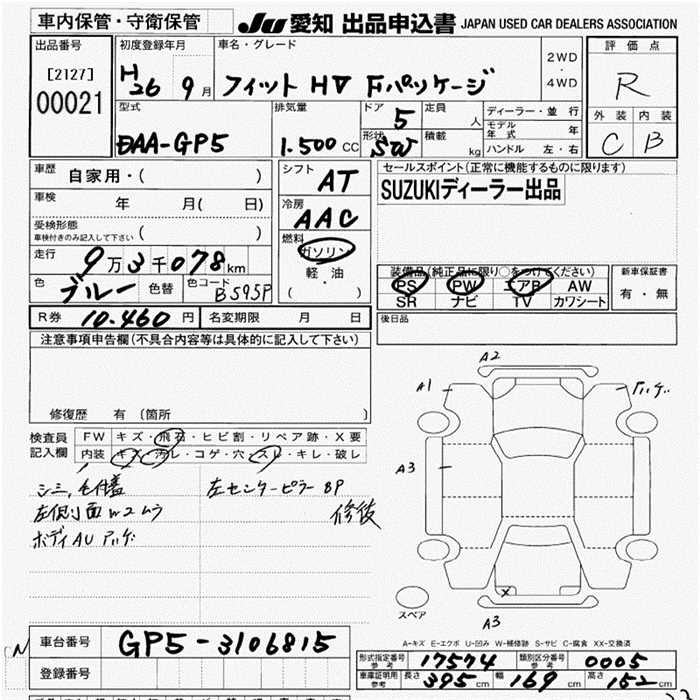 車内保管・守衛保管
JU 愛知 出品申込書 JAPAN USED CAR DEALERS ASSOCIATION
出品番号
[2127]
00021
初度登録年月
H26 9月
車名・グレード
フィット HV Fパッケージ
2WD
・
4WD
評価点
R
外装 内装
C B
型式
DAA-GP5
排気量
1.500 CC
ドア 5
形状 SW
定員 人
積載 kg
ディーラー・並行
モデル年式 年
ハンドル 左・右
車歴 自家用・( )
車検 年 月( 日)
受検形態
車検付きのみ記入して下さい ( )
走行 9万3千078km
色 ブルー 色替 色コード B595P
シフト AT
冷房 AAC
燃料
ガソリン
軽・油
( )
セールスポイント(正常に機能するものに限ります)
SUZUKIディーラー出品
装備品(純正品に限り○をつけてください)
PS PW エアB AW
SR ナビ TV カワシート
新車保証書
有・無
R券 10.460円 名変期限 月 日
後日品
注意事項申告欄(不具合内容等は具体的に記入して下さい)
修復歴 有 〔箇所 〕
検査員記入欄
FW キズ・飛石・ヒビ割・リペア跡・X要
内装 キズ・汚レ・コゲ・穴・スレ・キレ・破レ
シミ、毛付着
左側面W2ムラ
ボディAU アリ
左センターピラー BP
修後
A2
A1
A3
スペア
A3
A-キズ E-エクボ U-凹み W-補修跡 S-サビ C-腐食 XX-交換済
車台番号 GP5-3106815
登録番号
形式指定番号 参考 17574
類別区分番号 参考 0005
車庫証明用 参考 長さ 395cm 幅 169cm 高さ 152cm